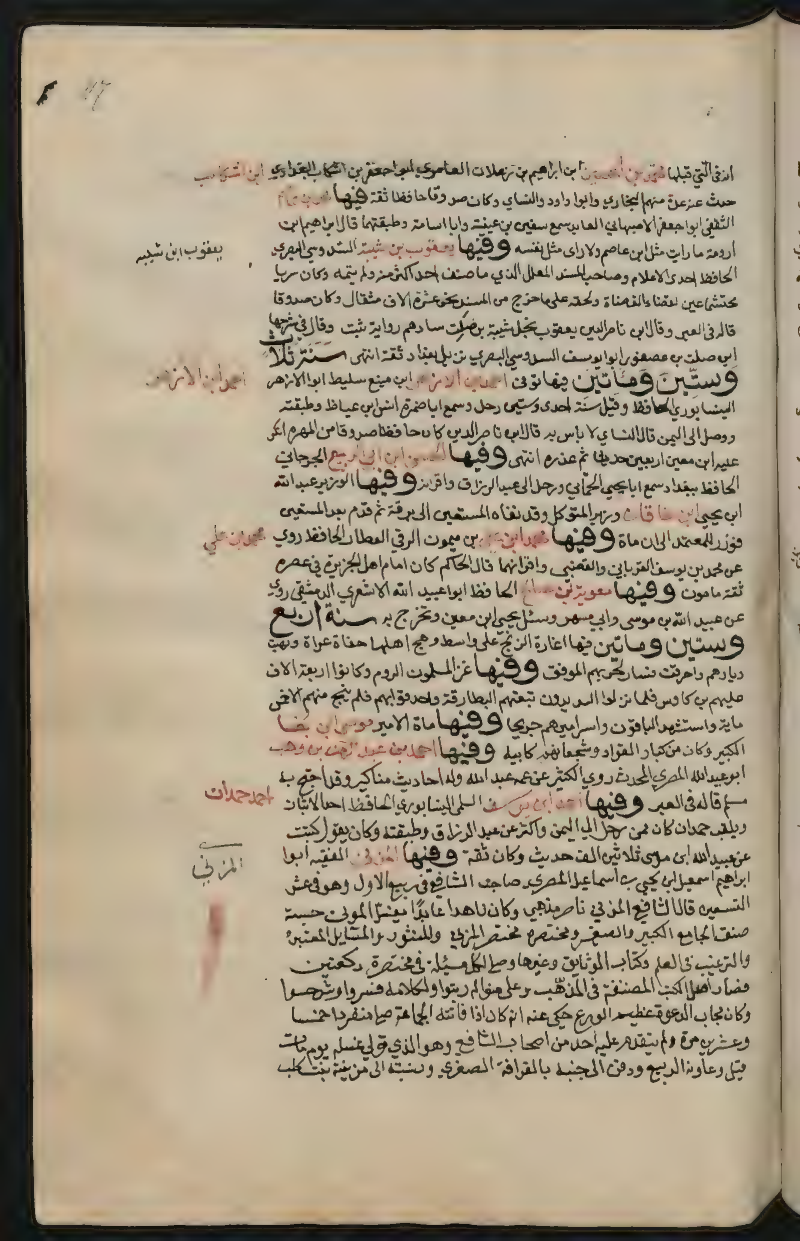 او في التي قبلها محمد بن الحسين ابن ابراهيم بن العامري ابو جعفر بن اشكاب البغدادي ابن اشكاب
حدث عنه عدة منهم البخاري وابو داود والنساي وكان صدوقا حافظا ثقة وفيها محمد بن
الثقفي ابو جعفر الاصبهاني العابد سمع سفين بن عيينة وابا اسامة وطبقتهما قال ابراهيم ابن
ارومة ما رايت مثل ابن عاصم ولا راى مثل نفسه وفيها يعقوب بن شيبة السدوسي البصري
يعقوب ابن شيبه
الحافظ احدى الاعلام وصاحب المسند المعلل الذي ما صنف احد اكثر منه ولم يتمه وكان سريا
محتشما عين لقضا القضاة ولحقه على ما خرج من المسند نحو عشرة الاف مثقال وكان صدوقا
قاله في العبر وقال ابن ناصر الدين يعقوب نجل شيبة بن صلت سادهم رواية ثبت وقال في شرحها
ابن صلت بن عصفور ابو يوسف السدوسي البصري نزيل بغداد ثقة انتهى سنة ثلاث
وستين وماتين فيها توفي احمد بن الازهر ابن منيع سليط ابو الازهر
احمد ابن الازهر
النيسابوري الحافظ وقيل سنة احدى وستين رحل وسمع ابا ضمرة انس ابن عياظ وطبقته
ووصل الى اليمن قال النساي لا باس به قال ابن ناصر الدين كان حافظا صدوقا من المهرة انكر
عليه ابن معين اربعين حديثا ثم عذره انتهى وفيها الحسن ابن ابي الربيع الجرجاني
الحافظ ببغداد سمع ابا يحيي الحماني ورحل الى عبد الرزاق واقرانه وفيها الوزير عبد الله
ابن يحيي ابن خاقان وزير المتوكل وقد نفاه المستعين الى برقة ثم قدم بعد المستعين
فوزر للمعتمد الى ان مات وفيها محمد ابن علي بن ميمون الرقي العطار الحافظ روي
محمد بن علي
عن محمد بن يوسف الفريابي والقعنبي واقرانهما قال الحاكم كان امام اهل الجزيرة في عصره
ثقة مامون وفيها معوية بن صالح الحافظ ابو عبيد الله الاشعري الدمشقي روى
عن عبيد الله بن موسى وابي مسهر وسئل يحيي ابن معين وتخرج به سنة اربع
وستين وماتين فيها اغارة الزنج على واسط وهج اهلها حفاة عراة ونهب
ديارهم واحرقت فسار لحربهم الموفق وفيها غزا المسلمون الروم وكانوا اربعة الاف
عليهم بن كاوس فلما نزلوا البديرون تبعتهم البطارقة واحدقوا بهم فلم ينج منهم الا خمس
ماية واستشهد الباقون واسر اميرهم جريحا وفيها مات الامير موسى ابن بغا
الكبير وكان من كبار القواد وشجعانهم كابيه وفيها احمد بن عبد الرحمن بن وهب
ابو عبيد الله المصري المحدث روي الكثير عن عمه عبد الله وله احاديث مناكير وقد احتج به
مسلم قاله في العبر وفيها احمد ابن يوسف السلمي النيسابوري الحافظ احد الاثبات
احمد حمدان
ويلقب حمدان كان ممن رحل الى اليمن واكثر عن عبد الرزاق وطبقته وكان يقول كتبت
عن عبيد الله ابن موسى ثلاثين الف حديث وكان ثقة وفيها المزني الفقيه ابوا
المزني
ابراهيم اسمعيل ابن يحيي بن اسماعيل المصري صاحب الشافعي في ربيع الاول وهو في عشر
التسعين قال الشافعي المزني ناصر مذهبي وكان زاهدا عابدا يغسل الموتى حسبة
صنف الجامع الكبير والصغير ومختصره مختصر المزني والمنثور والمسايل المعتبره
والترغيب في العلم وكتاب الوثايق وغيرها وصلى لكل مسئلة في مختصرة ركعتين
فصار اهل الكتب المصنفة في المذهب على منواله رتبوا ولكلامه فسروا وشرحوا
وكان مجاب الدعوة عظيم الورع حكي عنه انه كان اذا فاتته الجماعة صلى منفردا خمسا
وعشرين مرة ولم يتقدم عليه احد من اصحاب الشافعي وهو الذي تولى غسله يوم مات
قيل وعاونه الربيع ودفن الى جنبه بالقرافة الصغري ونسبته الى مزينة بنت كلب